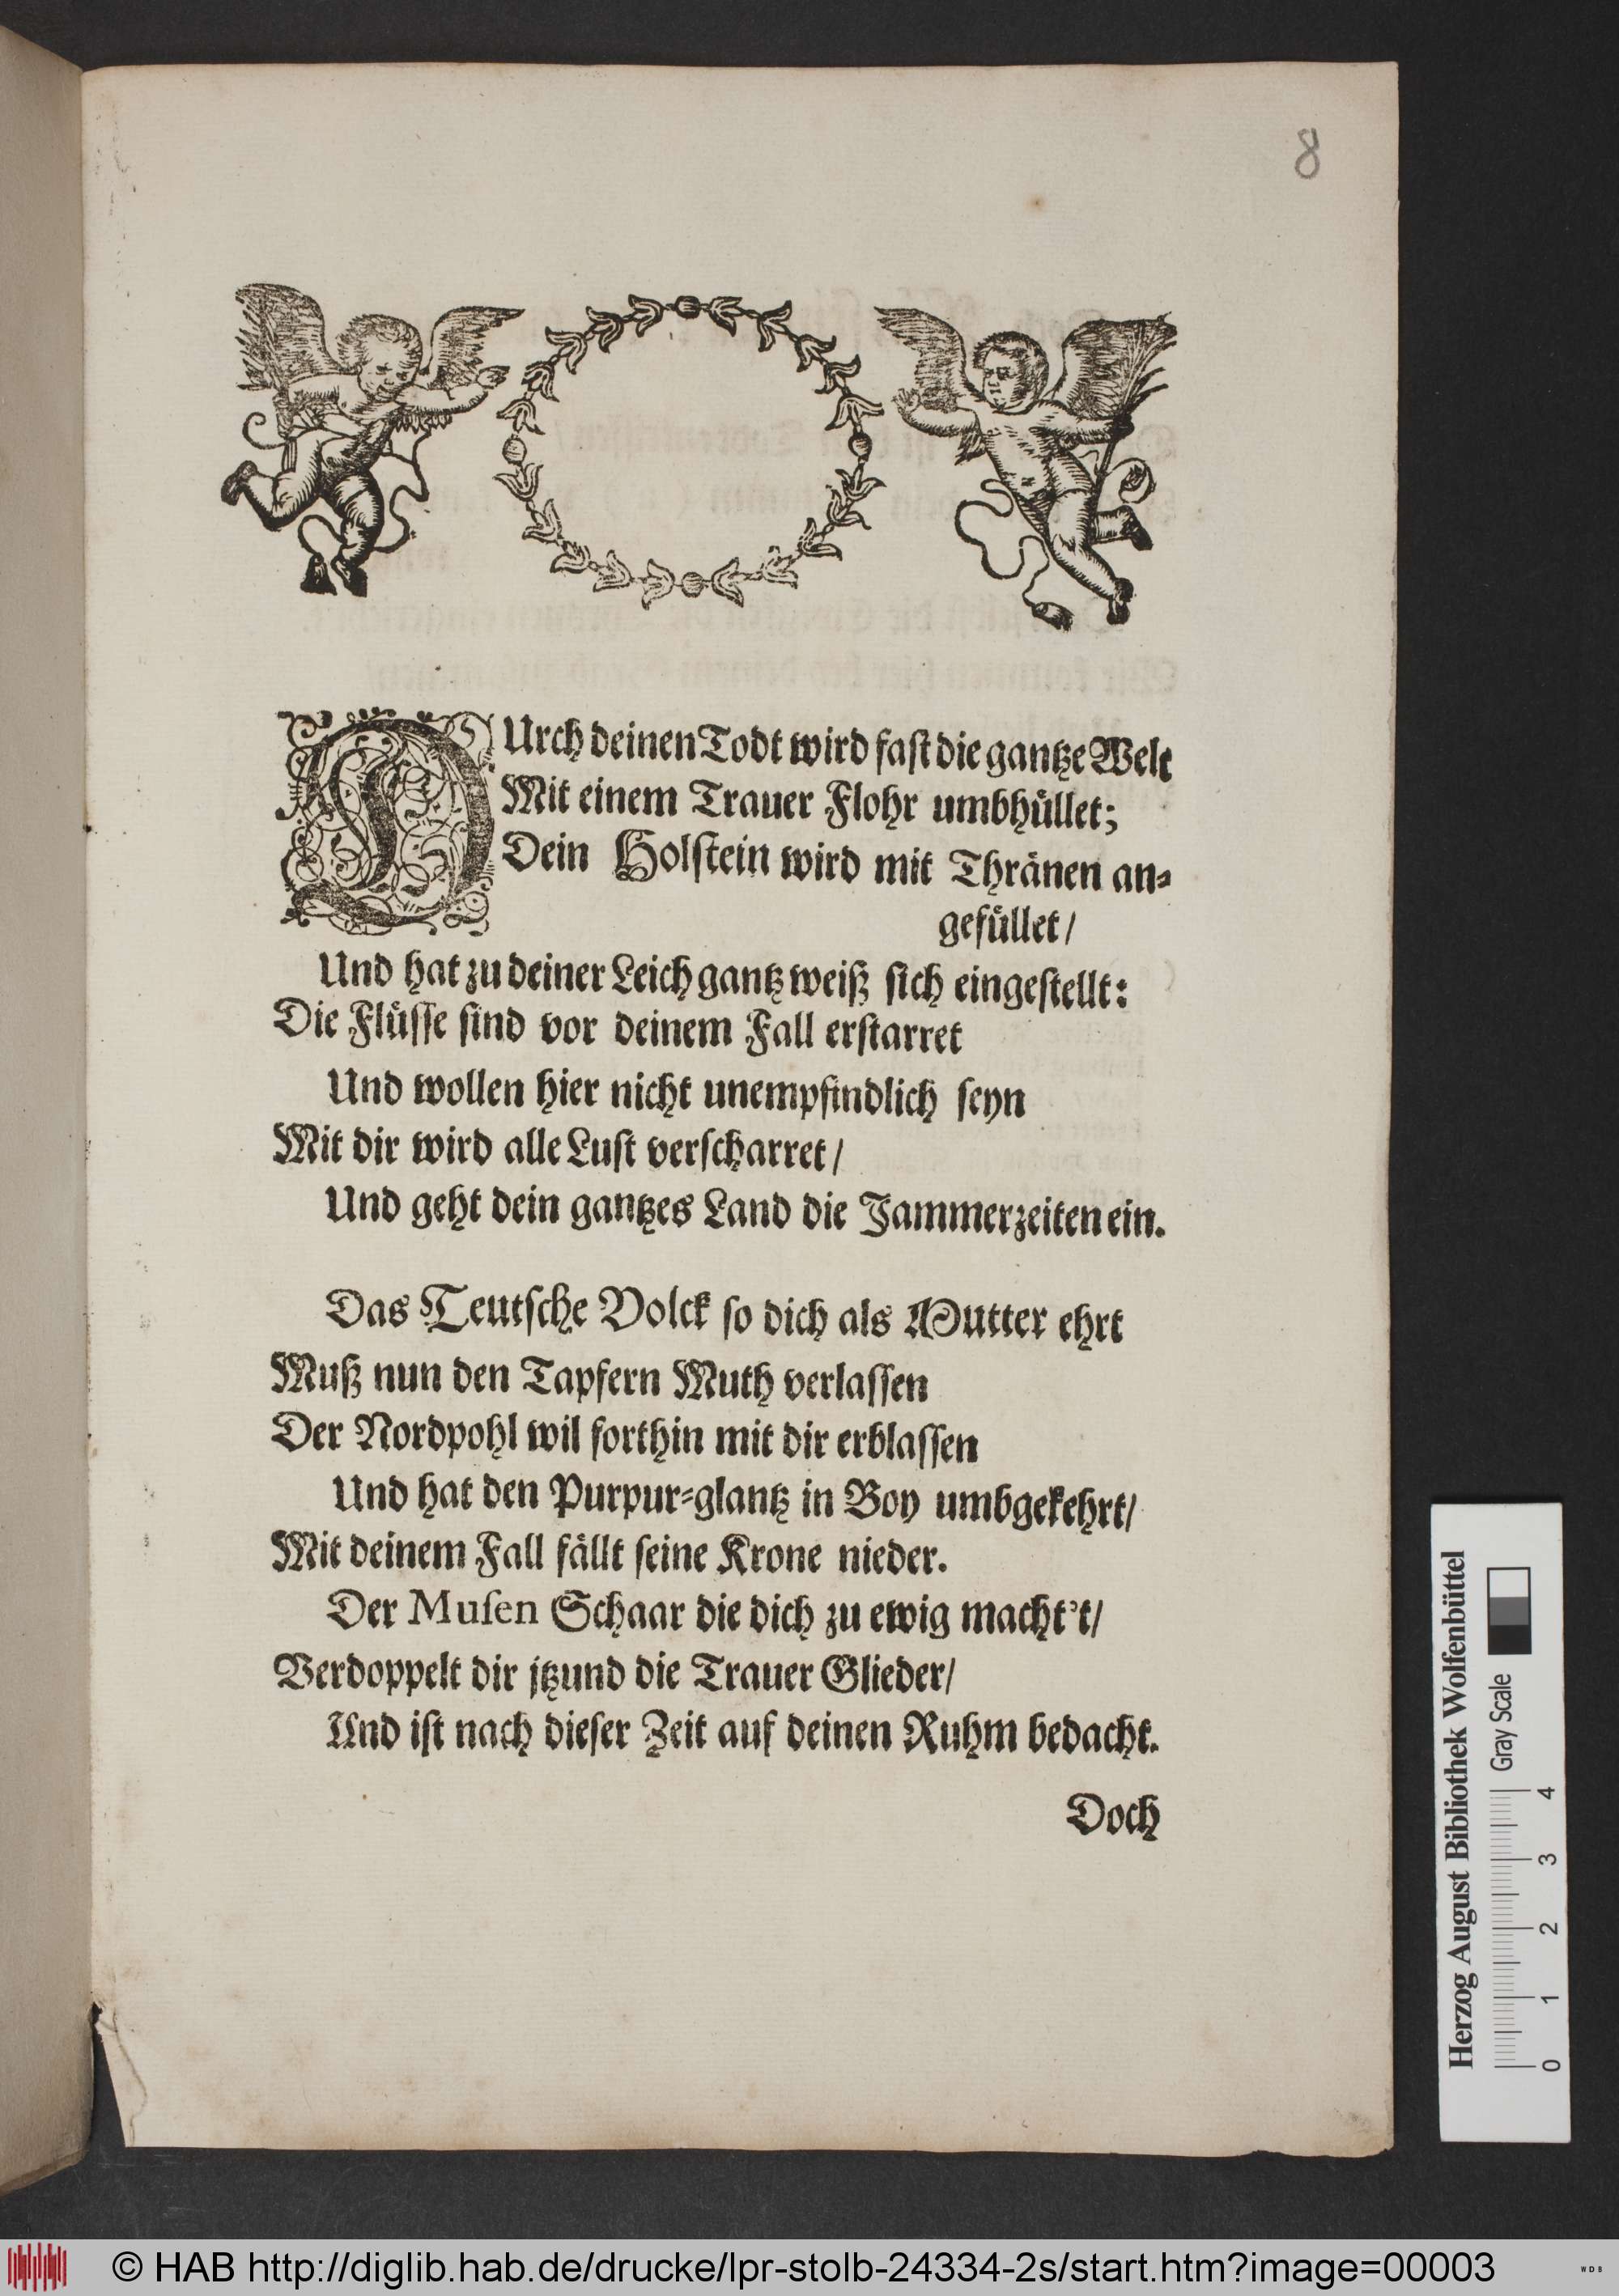 8
DUrch deinen Todt wird faſt die gantze Welt
Mit einem Trauer Flohr umbhuͤllet;
Dein Holſtein wird mit Thraͤnen an⸗
gefuͤllet/
Und hat zu deiner Leich gantz weiß ſich eingeſtellt:
Die Fluͤſſe ſind vor deinem Fall erſtarret
Und wollen hier nicht unempfindlich ſeyn
Mit dir wird alle Luſt verſcharret/
Und geht dein gantzes Land die Jammerzeiten ein.
Das Teutſche Volck ſo dich als Mutter ehrt
Muß nun den Tapfern Muth verlaſſen
Der Nordpohl wil forthin mit dir erblaſſen
Und hat den Purpur⸗glantz in Boy umbgekehrt/
Mit deinem Fall faͤllt ſeine Krone nieder.
Der Muſen Schaar die dich zu ewig macht't/
Verdoppelt dir jtzund die Trauer Glieder/
Und iſt nach dieſer Zeit auf deinen Ruhm bedacht.
Doch
Herzog August Bibliothek Wolfenbüttel
Gray Scale
0 1 2 3 4
© HAB http://diglib.hab.de/drucke/lpr-stolb-24334-2s/start.htm?image=00003
WDB